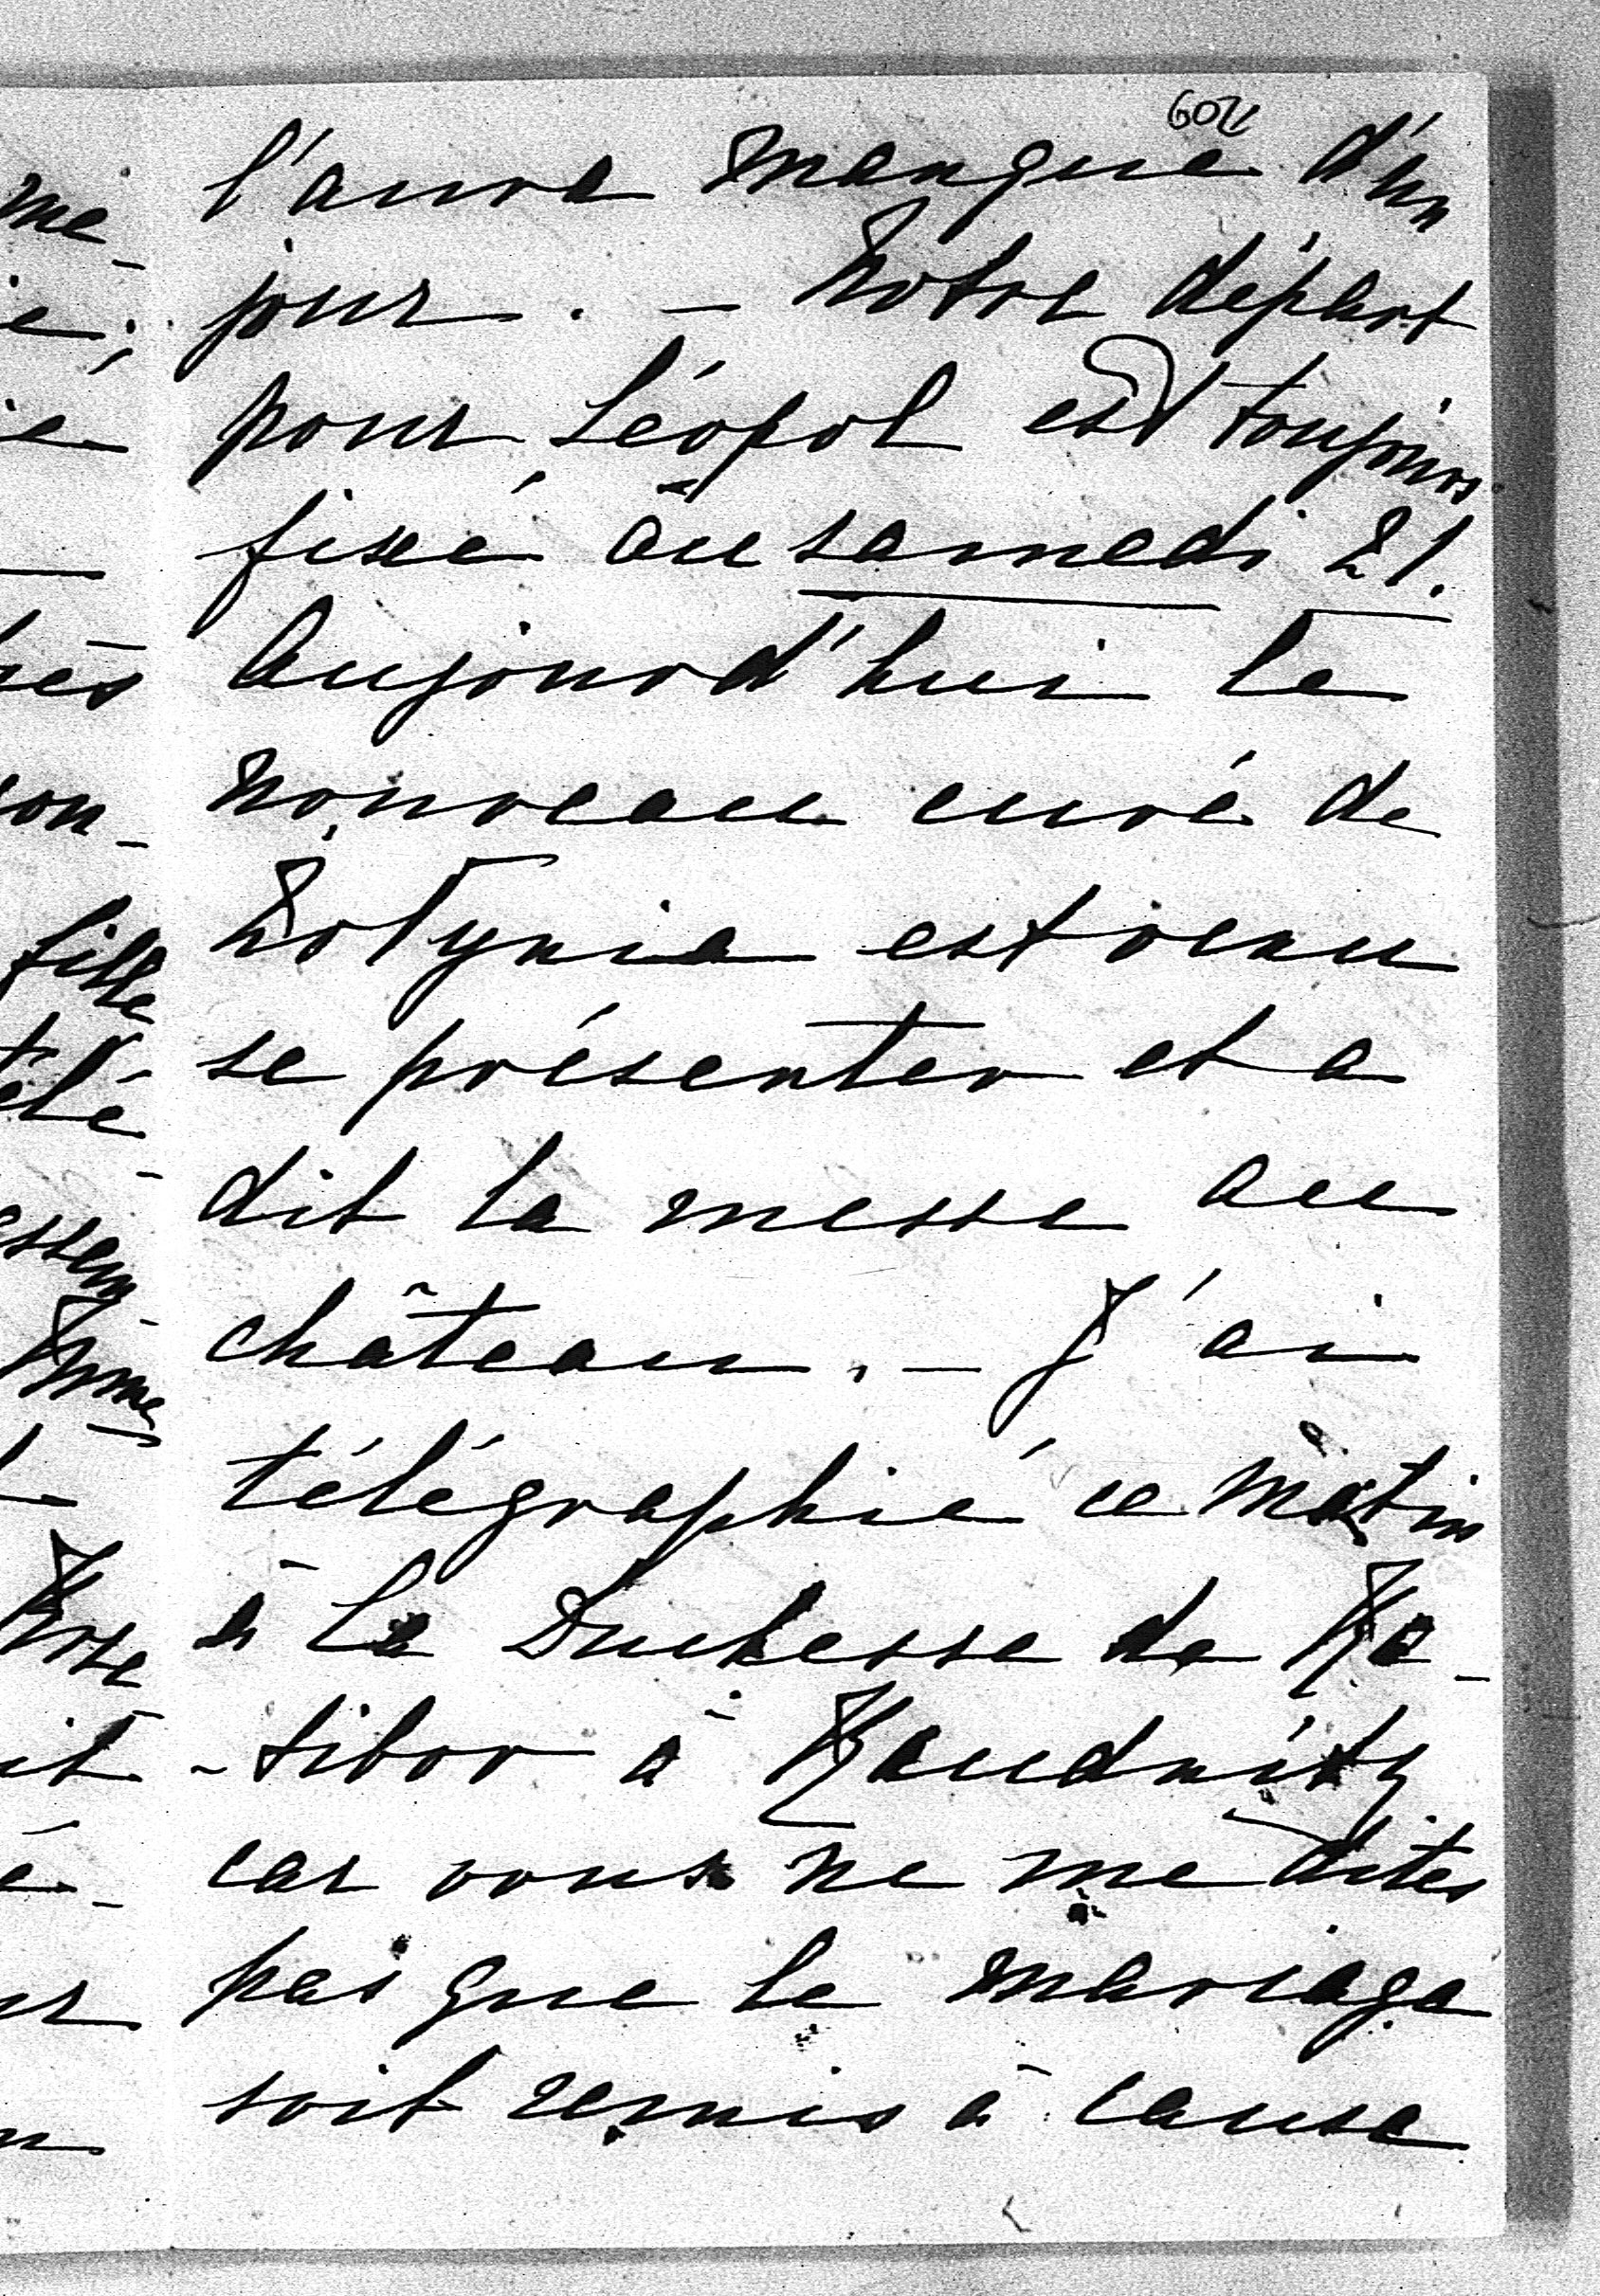 602
l'aura manqué d'un
jour. – Notre départ
pour Léopol est toujours
fixé au samedi 21.
Aujourd'hui le
nouveau curé de
Żołynia est venu
se présenter et a
dit la messe au
château. – J'ai
télégraphié ce matin
à la Duchesse de Ra-
-tibor à Raudnitz
car vous ne me dites
pas que le mariage
soit remis à cause